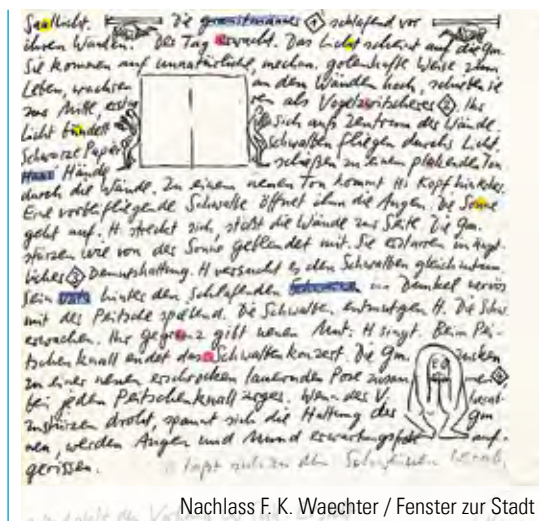 Saallicht. Die grannitmannes 1 schlafend vor
ihren Wänden. Der Tag erwacht. Das Licht scheint auf die Gm.
Sie kommen auf unnatürliche, mechan. golemhafte Weise zum
Leben, wachsen an den Wänden hoch, schieben sie
zur Mitte, als Vogelzwitscheres 2. Ihr
Licht bündelt sich aufs Zentrum der Wände.
Schwarze Papier Schwalben fliegen durchs Licht.
Hände schießen zu einem Ton
durch die Wände. Zu einem neuen Ton kommt Hs Kopf hinterher.
Eine vorbeifliegende Schwalbe öffnet ihm die Augen. Die Sonne
geht auf. H streckt sich, stößt die Wände zur Seite. Die Gm.
stürzen wie von der Sonne geblendet mit. Sie erstarren in ängst-
licher 3 Demutshaltung. H versucht es den Schwalben gleichzutun
Sein hinter den Schlafenden im Dunkel nervös
mit der Peitsche spielend. Die Schwalben entmutigen H. Die Schw.
erwachen. Ihr gibt neuen Mut: H singt. Beim Pei-
tschenknall endet das Schwalbenkonzert. Die Gm. zucken
zu einer neuen erschrocken lauernden Pose zusammen,
bei jedem Peitschenknall Wenn der V.
zustürzen droht, spannt sich die Haltung der Gm
werden Augen und Mund erwartungsfroh auf-
gerissen.
Nachlass F. K. Waechter / Fenster zur Stadt